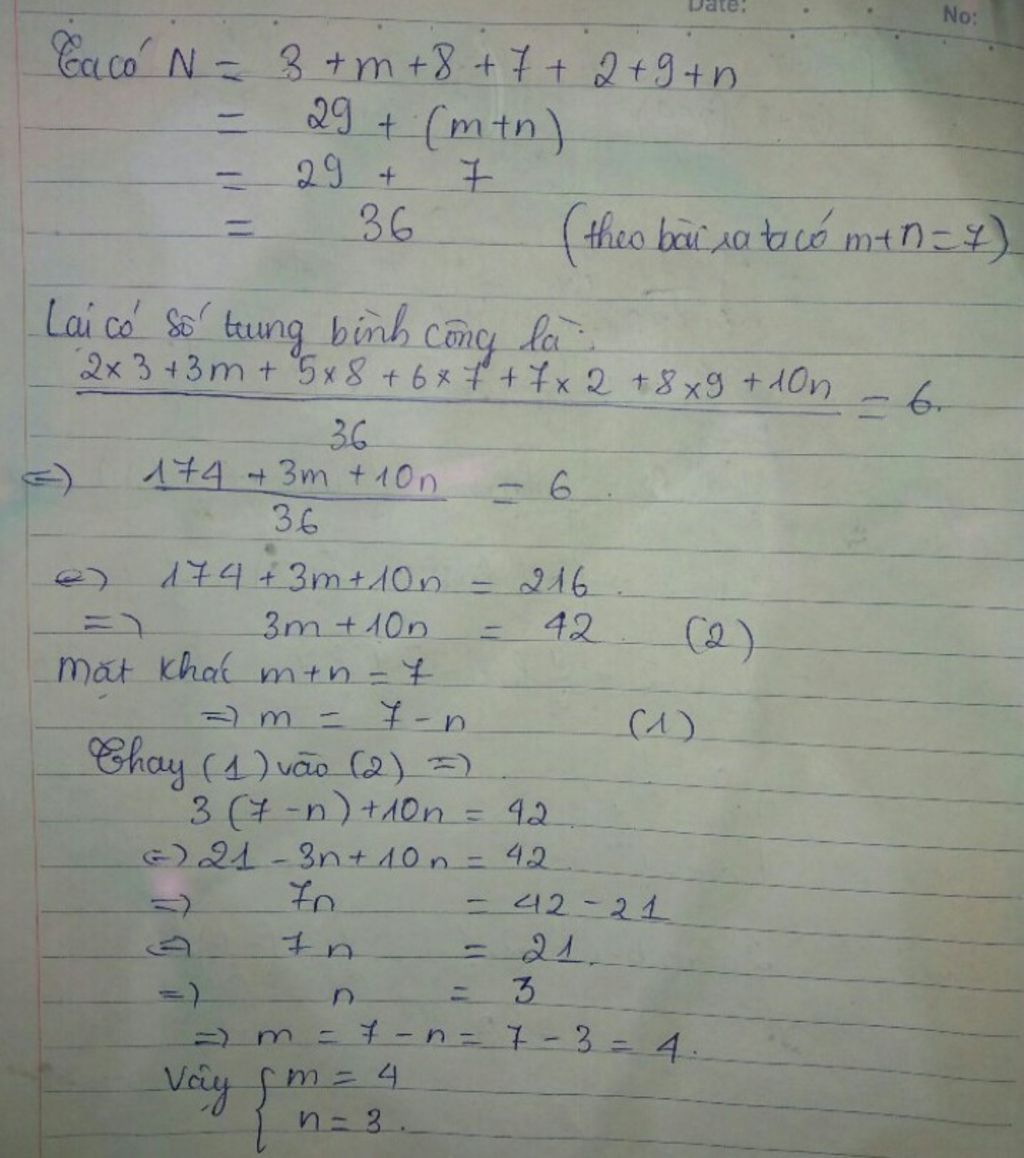 Date: No:
Ta có N = 3 + m + 8 + 7 + 2 + 9 + n
= 29 + (m+n)
= 29 + 7
= 36 (theo bài ra ta có m+n = 7)
Lại có số trung bình cộng là:
2 x 3 + 3m + 5 x 8 + 6 x 7 + 7 x 2 + 8 x 9 + 10n = 6.
36
<=> 174 + 3m + 10n = 6.
36
<=> 174 + 3m + 10n = 216.
=> 3m + 10n = 42. (2)
Mặt khác m+n = 7
=> m = 7 - n (1)
Thay (1) vào (2) =>
3 (7 - n) + 10n = 42
<=> 21 - 3n + 10n = 42.
=> 7n = 42 - 21
<=> 7n = 21.
=> n = 3
=> m = 7 - n = 7 - 3 = 4.
Vậy { m = 4
n = 3.